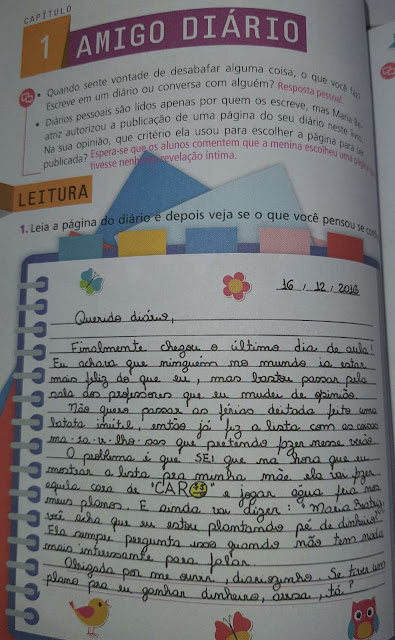 CAPÍTULO
1 AMIGO DIÁRIO
• Quando sente vontade de desabafar alguma coisa, o que você faz?
Escreve em um diário ou conversa com alguém? Resposta pessoal.
• Diários pessoais são lidos apenas por quem os escreve, mas Maria
atriz autorizou a publicação de uma página do seu diário neste
Na sua opinião, que critério ela usou para escolher a página para ser
publicada? Espera-se que os alunos comentem que a menina escolheu uma página
tivesse nenhuma revelação íntima.
LEITURA
1. Leia a página do diário e depois veja se o que você pensou se
16/12/2016
Querido diário,
Finalmente chegou o último dia de aula!
Eu achava que ninguém no mundo ia estar
mais feliz do que eu, mas bastou passar pela
sala dos professores que eu mudei de opinião.
Não quero passar as férias deitada feito uma
batata inútil, então já fiz a lista com as coisas
ma-ra-vi-lho-sas que pretendo fazer nesse verão.
O problema é que SEI que na hora que eu
mostrar a lista pra minha mãe ela vai fazer
aquela cara de "CAR " e jogar água fria nos
meus planos. E ainda vai dizer: "Maria Beatriz,
você acha que eu estou plantando pé de dinheiro?"
Ela sempre pergunta isso quando não tem nada
mais interessante para falar.
Obrigada por me ouvir, diariozinho. Se tiver um
plano pra eu ganhar dinheiro, avisa, tá?